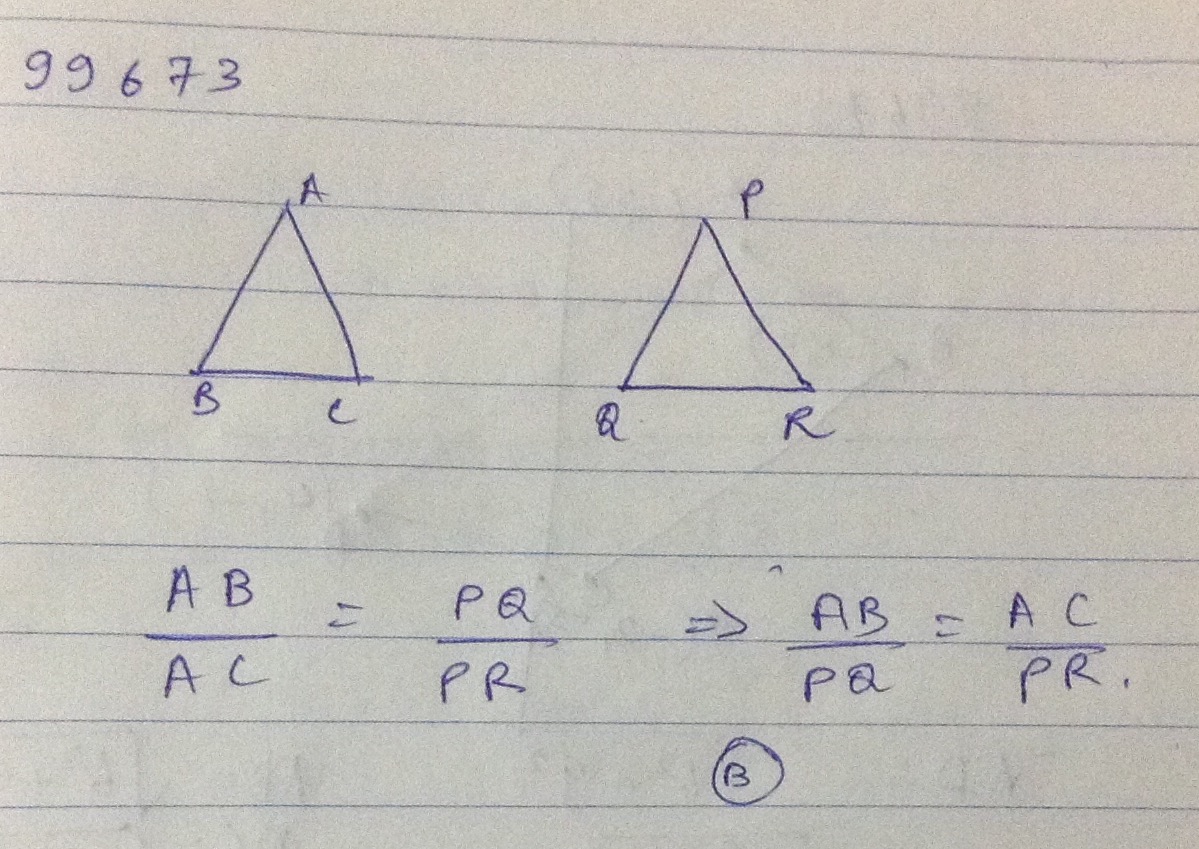 99673
A P
B C Q R
AB/AC = PQ/PR => AB/PQ = AC/PR.
B